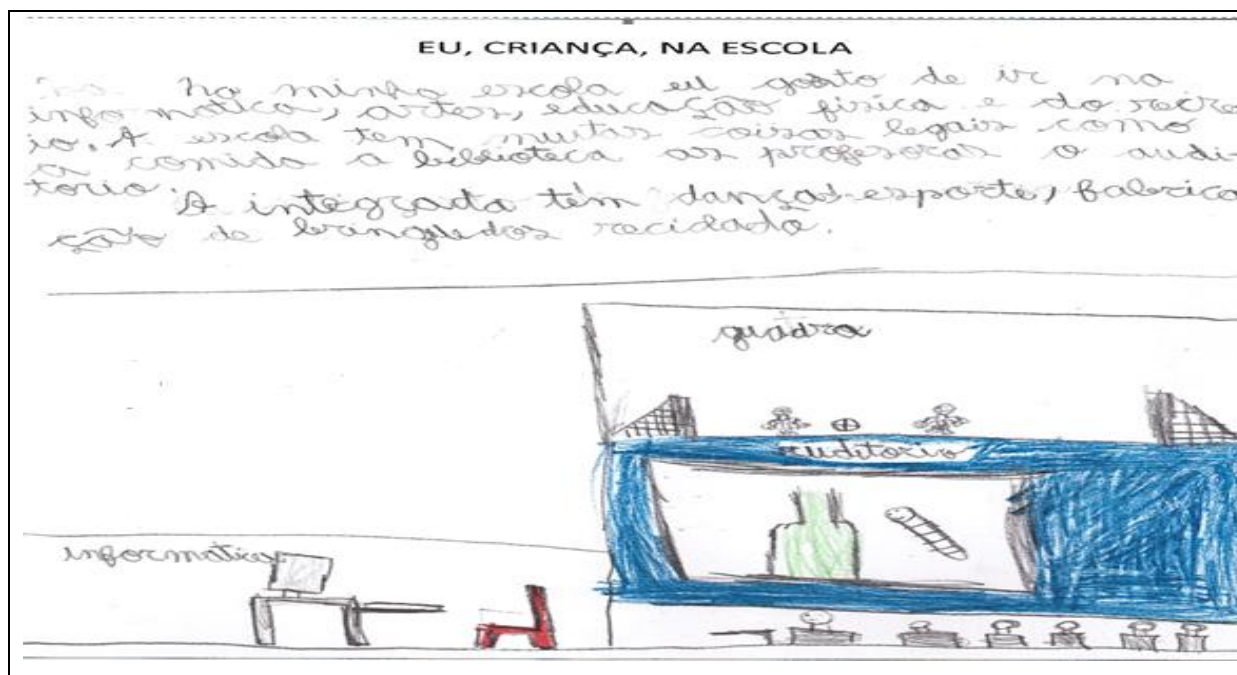 EU, CRIANÇA, NA ESCOLA
Na minha escola eu gosto de ir na
informatica, artes, educação fisica e do recre
io. A escola tem muitas coisas legais como
a comida a biblioteca as profesoras o audi-
torio.
A integrada têm danças esporte, fabrica
ção de bringuedos recidado.
quadra
auditorio
informatica